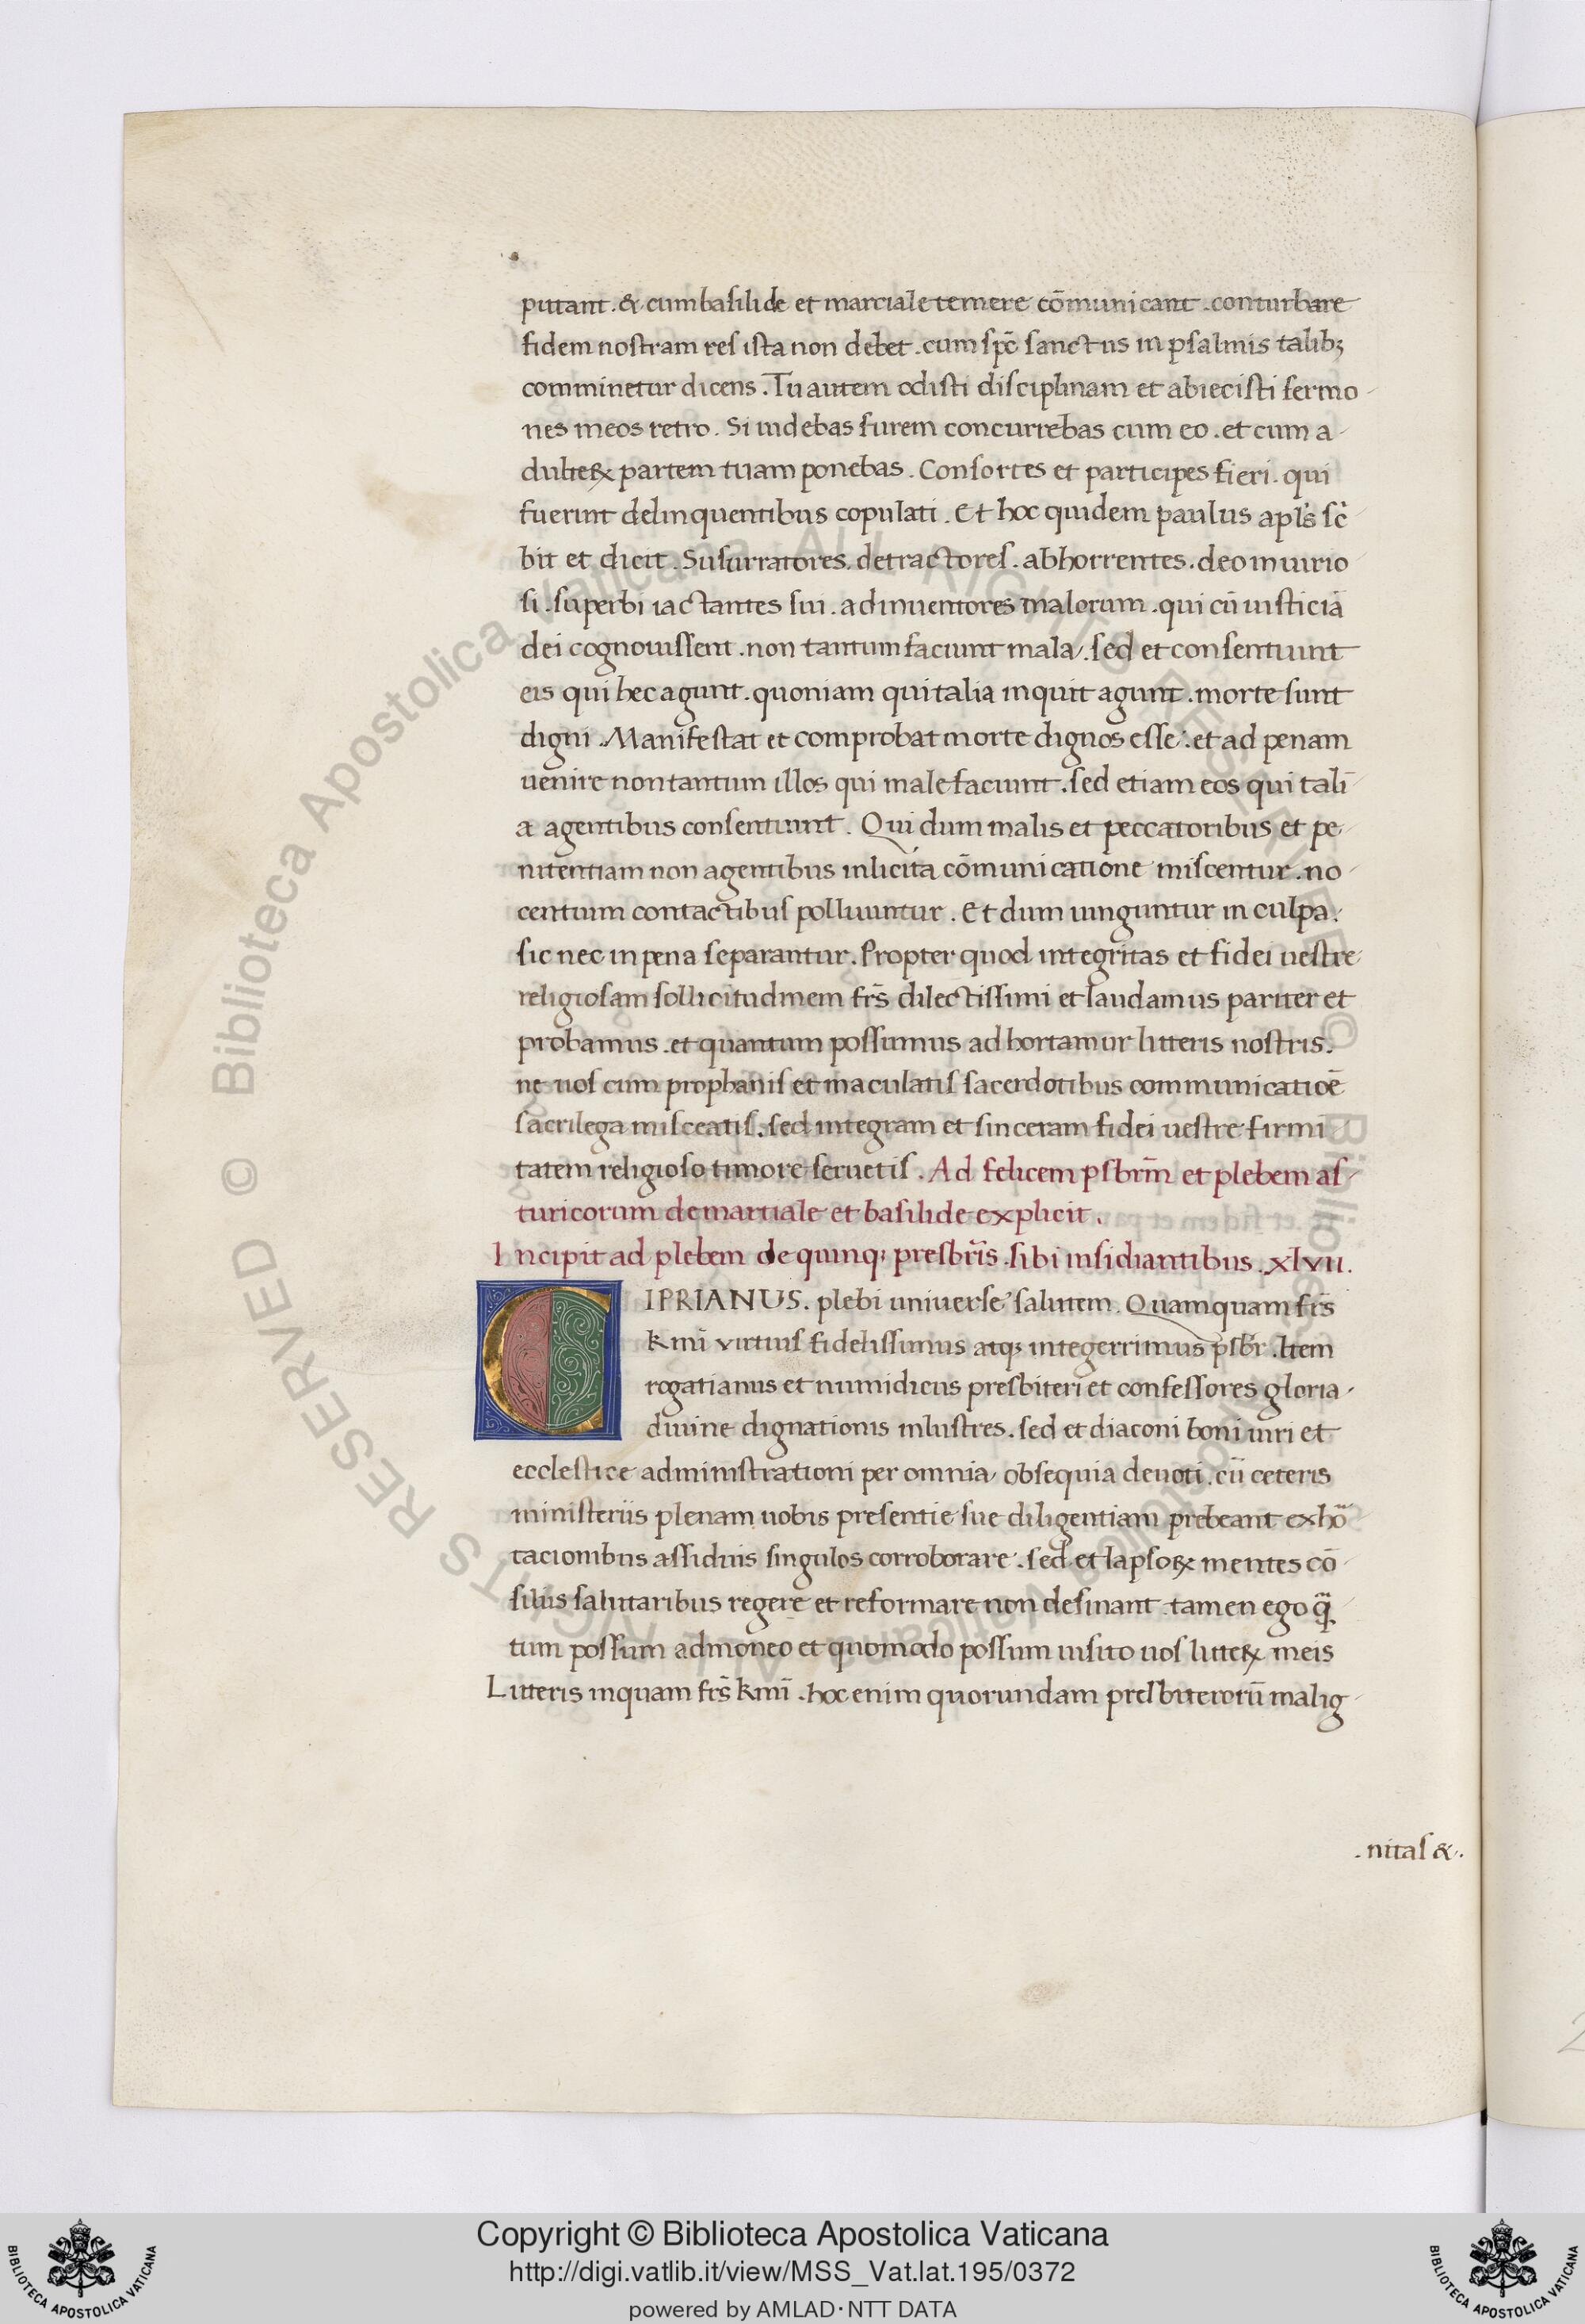 putant . & cum basilide et marciale temere cōmunicant . conturbare
fidem nostram res ista non debet . cum spc̄ sanctus in psalmis talibꝫ
comminetur dicens . Tu autem odisti disciplinam et abiecisti sermo-
nes meos retro . Si uidebas furem concurrebas cum eo . et cum a-
dulteꝝ partem tuam ponebas . Consortes et participes fieri . qui
fuerint delinquentibus copulati . Et hoc quidem paulus apl's sc̄-
bit et dicit . Susurratores . detractores . abhorrentes . deo iniurio
si . superbi iactantes sui . adinuentores malorum . qui cū iusticiā
dei cognouissent . non tantum faciunt mala . sed et consentiunt
eis qui hec agunt . quoniam qui talia inquit agunt . morte sunt
digni . Manifestat et comprobat morte dignos esse : et ad penam
uenire non tantum illos qui male faciunt . sed etiam eos qui tali-
a agentibus consentiunt . Qui dum malis et peccatoribus et pe-
nitentiam non agentibus inlicita cōmunicatione miscentur . no-
centium contactibus polluuntur . Et dum iunguntur in culpa .
sic nec in pena separantur . Propter quod integritas et fidei uestre
religiosam sollicitudinem frs̄ dilectissimi et laudamus pariter et
probamus . et quantum possumus adhortamur litteris nostris .
ne uos cum prophanis et maculatis sacerdotibus communicatioē
sacrilega misceatis . sed integram et sinceram fidei uestre firmi
tatem religioso timore seruetis . Ad felicem psbrm̄ et plebem as-
turicorum de martiale et basilide explicit .
Incipit ad plebem de quinqꝫ presbr̄is . sibi insidiantibus . xlvii .
CIPRIANUS . plebi universe salutem . Quamquam frs̄
kmī virtius fidelissimus atqꝫ integerrimus psbr̄ . Item
rogatianus et numidicus presbiteri et confessores gloria-
diuine dignationis inlustres . sed et diaconi boni uiri et
ecclestice administrationi per omnia obsequia deuoti . cū ceteris
ministeriis plenam uobis presentie sue diligentiam prebeant exhō-
tacionibus assiduis singulos corroborare . sed et lapsoꝝ mentes cō-
siliis salutaribus regere et reformare non desinant . tamen ego q̄-
tum possum admoneo et quomodo possum uisito uos litteꝝ meis
Litteris inquam frs̄ kmī . hoc enim quorundam presbiterorū malig-
. nitas & .
© Biblioteca Apostolica Vaticana ALL RIGHTS RESERVED © Biblioteca Apostolica Vaticana ALL RIGHTS RESERVED
Copyright © Biblioteca Apostolica Vaticana
http://digi.vatlib.it/view/MSS_Vat.lat.195/0372
powered by AMLAD·NTT DATA
BIBLIOTECA APOSTOLICA VATICANA
BIBLIOTECA APOSTOLICA VATICANA